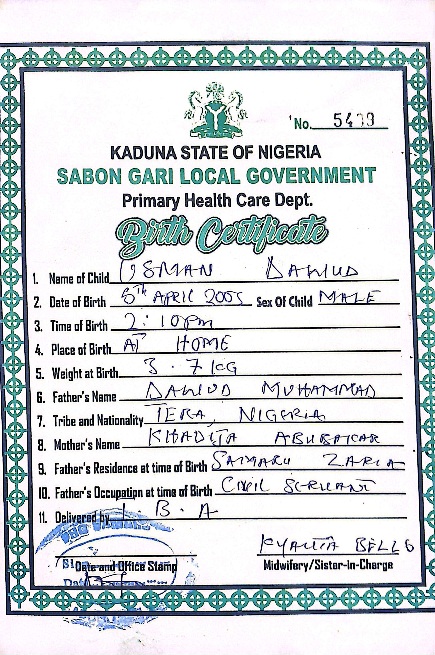 No. 5439
KADUNA STATE OF NIGERIA
SABON GARI LOCAL GOVERNMENT
Primary Health Care Dept.
Birth Certificate
1. Name of Child USMAN DAWUD
2. Date of Birth 5th APRIL 2005 Sex Of Child MALE
3. Time of Birth 2:10pm
4. Place of Birth AT HOME
5. Weight at Birth 3.7KG
6. Father's Name DAWUD MUHAMMAD
7. Tribe and Nationality TERA, NIGERIA
8. Mother's Name KHADIJA ABUBAKAR
9. Father's Residence at time of Birth SAMARU ZARIA
10. Father's Occupation at time of Birth CIVIL SERVANT
11. Delivered by B.A
BELLO
Date and Office Stamp Midwifery/Sister-in-Charge